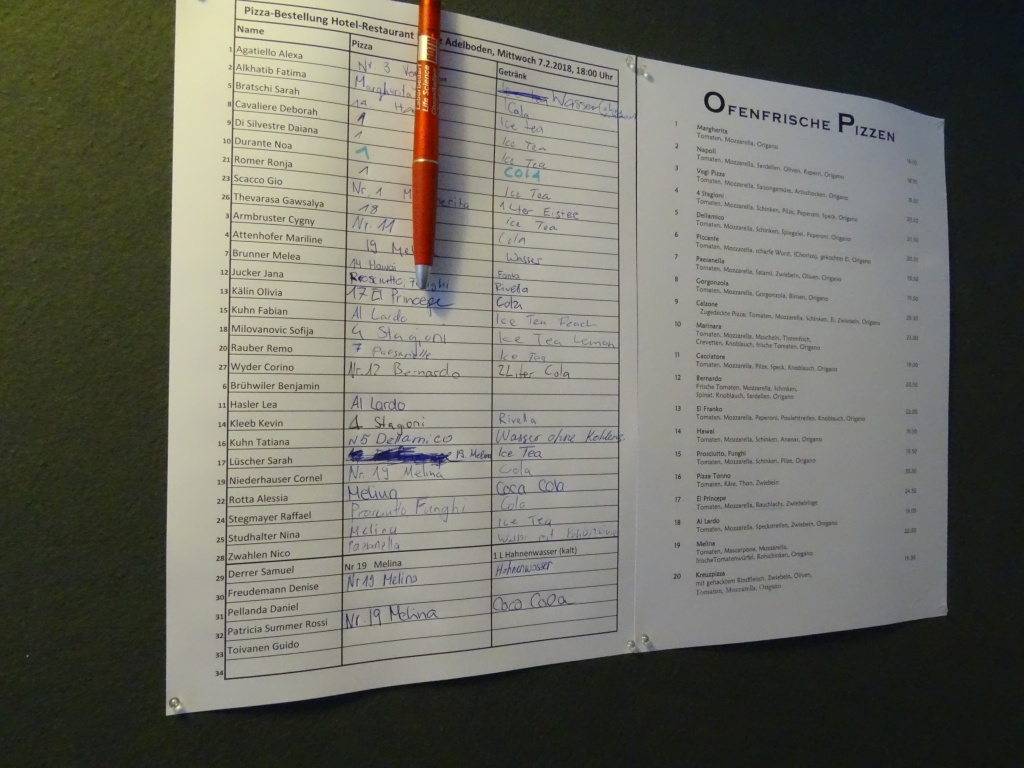 Pizza-Bestellung Hotel-Restaurant Adelboden, Mittwoch 7.2.2018, 18:00 Uhr
Name Pizza Getränk
1 Agatiello Alexa Nr. 3 Wasser
2 Alkhatib Fatima Margherita Cola
5 Bratschi Sarah 14 Ice tea
8 Cavaliere Deborah 1 Ice Tea
9 Di Silvestre Daiana 1 Ice Tea
10 Durante Noa 1 Cola
21 Romer Ronja 1 Ice Tea
23 Scacco Gio Nr. 1 1 Liter Eistee
26 Thevarasa Gawsalya 18 Ice Tea
3 Armbruster Cygny Nr. 11 Cola
4 Attenhofer Mariline 19 Wasser
7 Brunner Melea 14 Hawai Fanta
12 Jucker Jana Prosciutto, Funghi Rivella
13 Kälin Olivia 17 El Princepe Cola
15 Kuhn Fabian Al Lardo Ice Tea Peach
18 Milovanovic Sofija 4 Stagioni Ice Tea Lemon
20 Rauber Remo 7 Ice Tea
27 Wyder Corino Nr. 12 Bernardo 2 Liter Cola
6 Brühwiler Benjamin
11 Hasler Lea Al Lardo
14 Kleeb Kevin 4 Stagioni Rivella
16 Kuhn Tatiana N5 Dellamico Wasser ohne Kohlens.
17 Lüscher Sarah 19. Melina Ice Tea
19 Niederhauser Cornel Nr. 19 Melina Cola
22 Rotta Alessia Melina Coca Cola
24 Stegmayer Raffael Prosciuto Funghi Cola
25 Studhalter Nina Melina Ice Tea
28 Zwahlen Nico
29 Derrer Samuel Nr 19 Melina 1 L Hahnenwasser (kalt)
30 Freudemann Denise Nr 19 Melina Hahnenwasser
31 Pellanda Daniel
32 Patricia Summer Rossi Nr. 19 Melina Coca Cola
33 Toivanen Guido
34
Life Science
OFENFRISCHE PIZZEN
1 Margherita
Tomaten, Mozzarella, Origano
2 Napoli
Tomaten, Mozzarella, Sardellen, Oliven, Kapern, Origano
3 Vegi Pizza
Tomaten, Mozzarella, Saisongemüse, Artischocken, Origano
4 4 Stagioni
Tomaten, Mozzarella, Schinken, Pilze, Peperoni, Speck, Origano
5 Dellamico
Tomaten, Mozzarella, Schinken, Spiegelei, Peperoni, Origano
6 Piccante
Tomaten, Mozzarella, scharfe Wurst, (Chorizo), grünschen Ei, Origano
7 Paesanella
Tomaten, Mozzarella, Salami, Zwiebeln, Oliven, Origano
8 Gorgonzola
Tomaten, Mozzarella, Gorgonzola, Birnen, Origano
9 Calzone
Zugedeckte Pizza: Tomaten, Mozzarella, Schinken, Ei, Zwiebeln, Origano
10 Marinara
Tomaten, Mozzarella, Muscheln, Tintenfisch,
Crevetten, Knoblauch, frische Tomaten, Origano
11 Cacciatore
Tomaten, Mozzarella, Pilze, Speck, Knoblauch, Origano
12 Bernardo
Frische Tomaten, Mozzarella, Schinken,
Spinat, Knoblauch, Sardellen, Origano
13 El Franko
Tomaten, Mozzarella, Peperoni, Pouletstreifen, Knoblauch, Origano
14 Hawai
Tomaten, Mozzarella, Schinken, Ananas, Origano
15 Prosciutto, Funghi
Tomaten, Mozzarella, Schinken, Pilze, Origano
16 Pizza Tonno
Tomaten, Käse, Thon, Zwiebeln
17 El Principe
Tomaten, Mozzarella, Rauchlachs, Zwiebelringe
18 Al Lardo
Tomaten, Mozzarella, Speckstreifen, Zwiebeln, Oregano
19 Melina
Tomaten, Mascarpone, Mozzarella,
frischeTomatenwürfel, Rohschinken, Oregano
20 Kreuzpizza
mit gehacktem Rindfleisch, Zwiebeln, Oliven,
Tomaten, Mozzarella, Origano